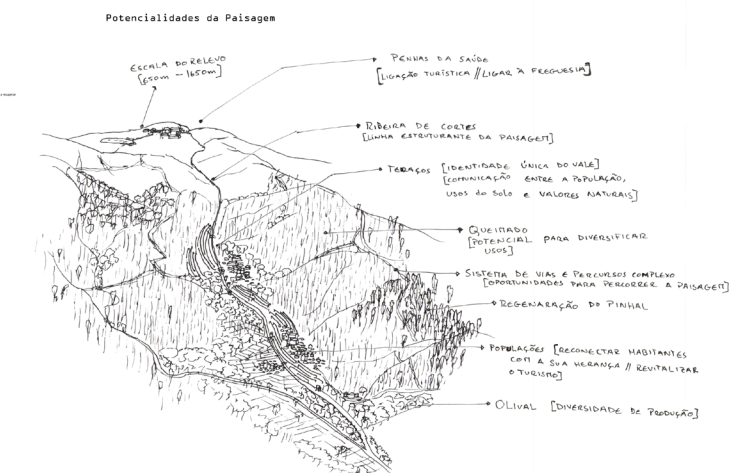 Potencialidades da Paisagem
ESCALA DO RELEVO
[650m – 1650m]
PENHAS DA SAÚDE
[LIGAÇÃO TURÍSTICA // LIGAR À FREGUESIA]
RIBEIRA DE CORTES
[LINHA ESTRUTURANTE DA PAISAGEM]
TERRAÇOS [IDENTIDADE ÚNICA DO VALE]
[COMUNICAÇÃO ENTRE A POPULAÇÃO,
USOS do SOLO E VALORES NATURAIS]
QUEIMADO
[POTENCIAL PARA DIVERSIFICAR
USOS]
SISTEMA DE VIAS E PERCURSOS COMPLEXO
[OPORTUNIDADES PARA PERCORRER A PAISAGEM]
REGENARAÇÃO DO PINHAL
POPULAÇÕES [RECONECTAR HABITANTES
COM A SUA HERANÇA // REVITALIZAR
O TURISMO]
OLIVAL [DIVERSIDADE DE PRODUÇÃO]